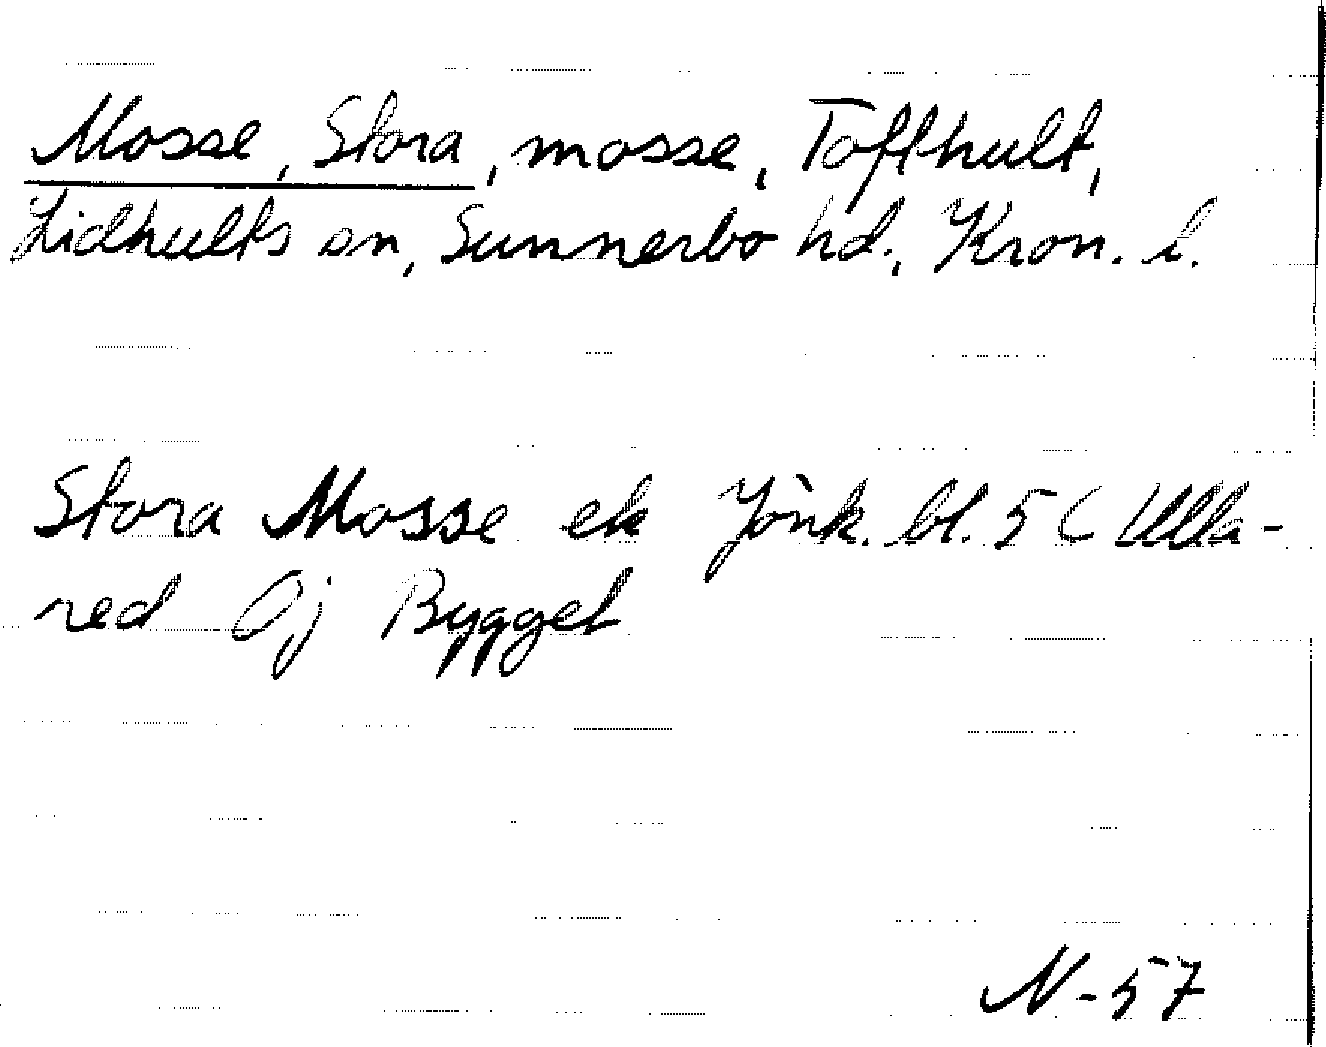 Mosse, Stora, mosse, Tofthult,
Lidhults sn, Sunnerbo hd., Kron. l.
Stora Mosse ek Jönk. bl. 5 C Ulla-
red 0j Bygget
N-57